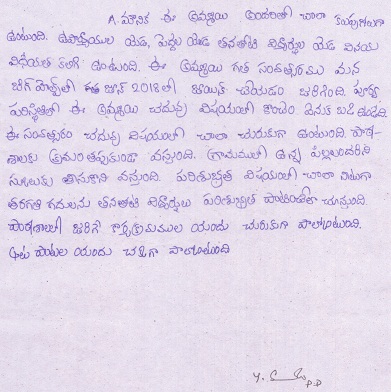 A. మౌనిక ఈ అమ్మాయి అందరితో చాలా కలుపుగోలుగా
ఉంటుంది. ఉపాధ్యాయుల యెడ, పెద్దల యెడ తనతోటి విద్యార్థుల యెడ వినయ
విధేయత కలిగి ఉంటుంది. ఈ అమ్మాయి గత సంవత్సరము మన
జూన్ 2018 లో జాయిన్ చేయడం జరిగింది. పూర్వ
పరిస్థితిలో ఈ అమ్మాయి చదువు విషయంలో కొంచెం వెనుకబడి ఉండేది.
ఈ సంవత్సరం చదువు విషయంలో చాలా చురుకుగా ఉంటుంది. పాఠ-
శాలకు క్రమం తప్పకుండా వస్తుంది. గ్రామములో ఉన్న పిల్లలందరినీ
స్కూలుకు తీసుకొని వస్తుంది. పరిశుభ్రత విషయంలో చాలా నీటుగా
తరగతి గదులను తనతోటి విద్యార్థులు పరిశుభ్రత పాటించేలా చూస్తుంది.
పాఠశాలలో జరిగే కార్యక్రమముల యందు చురుకుగా పాల్గొంటుంది.
ఆటపాటల యందు చక్కగా పాల్గొంటుంది
P.D